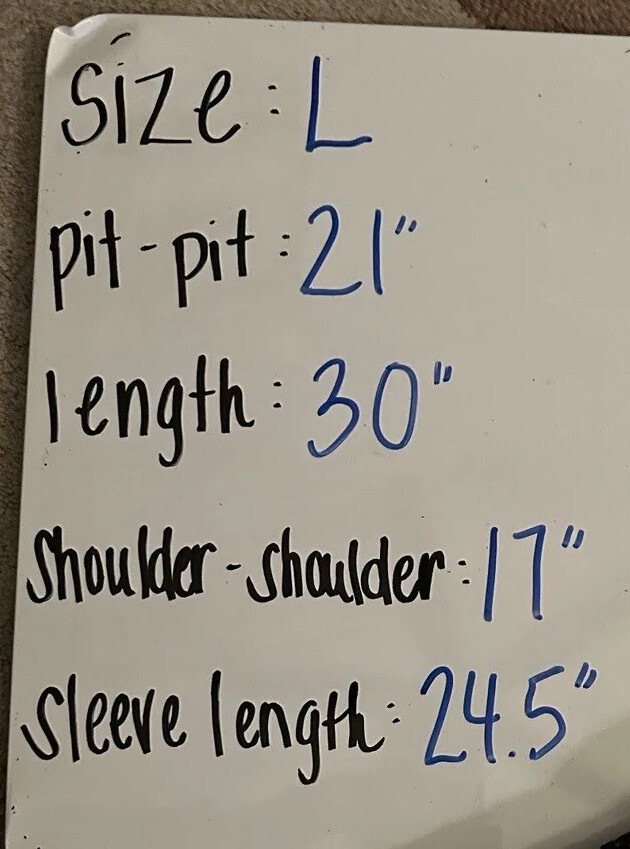 Size: L
pit-pit: 21"
length: 30"
Shoulder-shoulder: 17"
Sleeve length: 24.5"